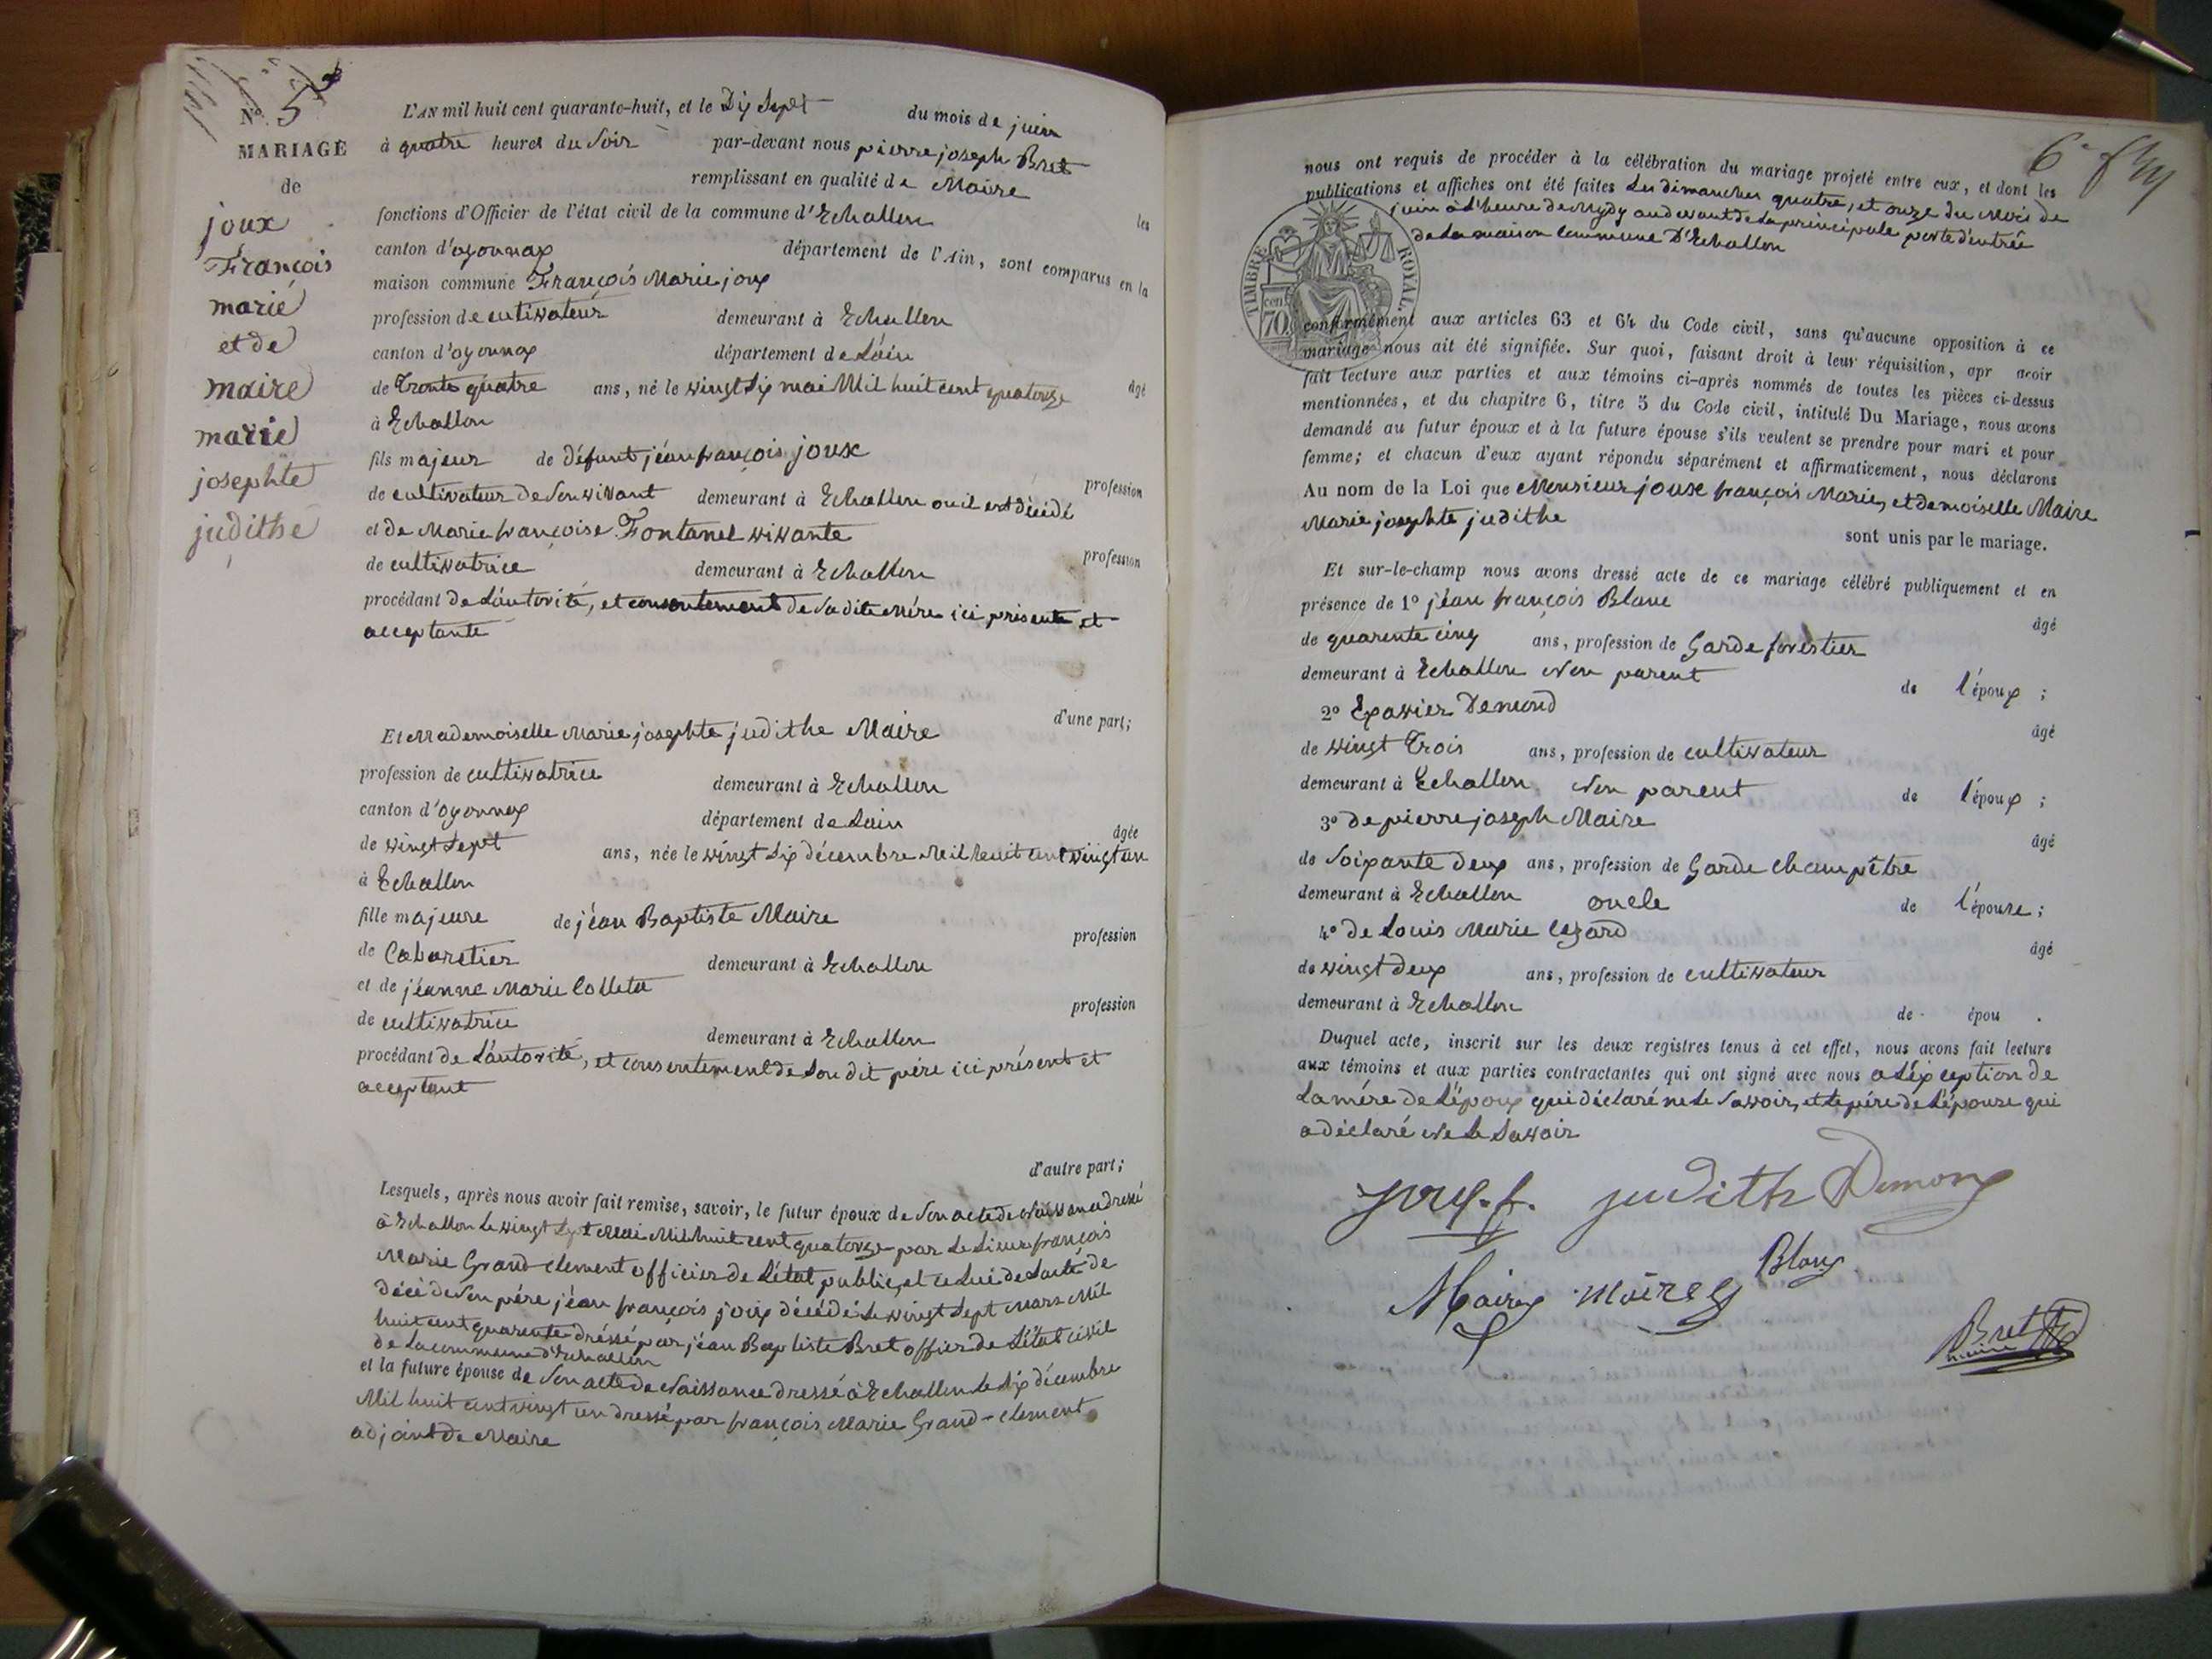 N° 5
MARIAGE
de
joux
François
marie
et de
maire
marie
josephte
judithe
L'AN mil huit cent quarante-huit, et le Dix Sept du mois de juin
à quatre heures du Soir par-devant nous pierre joseph Bret
remplissant en qualité de Maire les
fonctions d'Officier de l'état civil de la commune d'Echallon
canton d'oyonnax département de l'Ain, sont comparus en la
maison commune François Marie joux
profession de cultivateur demeurant à Echallon
canton d'oyonnax département de L'ain
de Trente quatre ans, né le vingt Six mai Mil huit cent quatorze âgé
à Echallon
fils majeur de défunt jéan françois joux
de cultivateur de Son vivant demeurant à Echallon ou il est décédé profession
et de Marie françoise Fontanel vivante
de cultivatrice demeurant à Echallon profession
procédant de L'autorité, et consentement de Sadite Mére ici présente et
acceptante
d'une part;
Et Mademoiselle Marie josephte judithe Maire
profession de cultivatrice demeurant à Echallon
canton d'oyonnax département de Lain
de vingt Sept ans, née le vingt Six décembre Mil huit cent vingt un âgée
à Echallon
fille majeure de jéan Baptiste Maire
de Cabaretier demeurant à Echallon profession
et de jéanne Marie Colletta
de cultivatrice demeurant à Echallon profession
procédant de L'autorité, et consentement de Son dit pére ici présent et
acceptant
d'autre part;
Lesquels, après nous avoir fait remise, savoir, le futur époux de Son acte de Naissance dressé
à Echallon Le vingt Sept Mai Mil huit cent quatorze par Le Sieur françois
Marie Grand-clement officier de L'état public, et celui de L'acte de
décé de Son pére jéan françois joux décédé Le vingt Sept Mars Mil
huit cent quarente dréssé par jéan Baptiste Bret officier de L'état civil
de La commune d'Echallon
et la future épouse de Son acte de Naissance dressé à Echallon Le Six décembre
Mil huit cent vingt un dressé par françois Marie Grand-clement
adjoint de Maire
6e
nous ont requis de procéder à la célébration du mariage projeté entre eux, et dont les
publications et affiches ont été faites Les dimanches quatre, et onze du Mois de
juin à L'heure de Mydy audevant de La principale porte d'entrée
de La maison Commune D'Echallon
TIMBRE ROYAL
cent
70
conformément aux articles 63 et 64 du Code civil, sans qu'aucune opposition à ce
mariage nous ait été signifiée. Sur quoi, faisant droit à leur réquisition, apr avoir
fait lecture aux parties et aux témoins ci-après nommés de toutes les pièces ci-dessus
mentionnées, et du chapitre 6, titre 5 du Code civil, intitulé Du Mariage, nous avons
demandé au futur époux et à la future épouse s'ils veulent se prendre pour mari et pour
femme; et chacun d'eux ayant répondu séparément et affirmativement, nous déclarons
Au nom de la Loi que Monsieur joux françois Marie, et demoiselle Maire
Marie josephte judithe
sont unis par le mariage.
Et sur-le-champ nous avons dressé acte de ce mariage célébré publiquement et en
présence de 1° jéan françois Blanc
de quarente cinq ans, profession de Garde forestier âgé
demeurant à Echallon Non parent de l'époux ;
2° Exavier Demond
de vingt Trois ans, profession de cultivateur âgé
demeurant à Echallon Non parent de l'époux ;
3° de pierre joseph Maire
de Soixante deux ans, profession de Garde champêtre âgé
demeurant à Echallon oncle de l'épouse ;
4° de Louis Marie Cézard
de vingt deux ans, profession de cultivateur âgé
demeurant à Echallon de épou .
Duquel acte, inscrit sur les deux registres tenus à cet effet, nous avons fait lecture
aux témoins et aux parties contractantes qui ont signé avec nous a L'éxception de
La mére de L'époux qui déclaré ne Le Savoir, et Le pére de L'épouse qui
a déclaré Ne Le Savoir
joux. f. judith Demon
Maire maire Blanc
Bret
maire